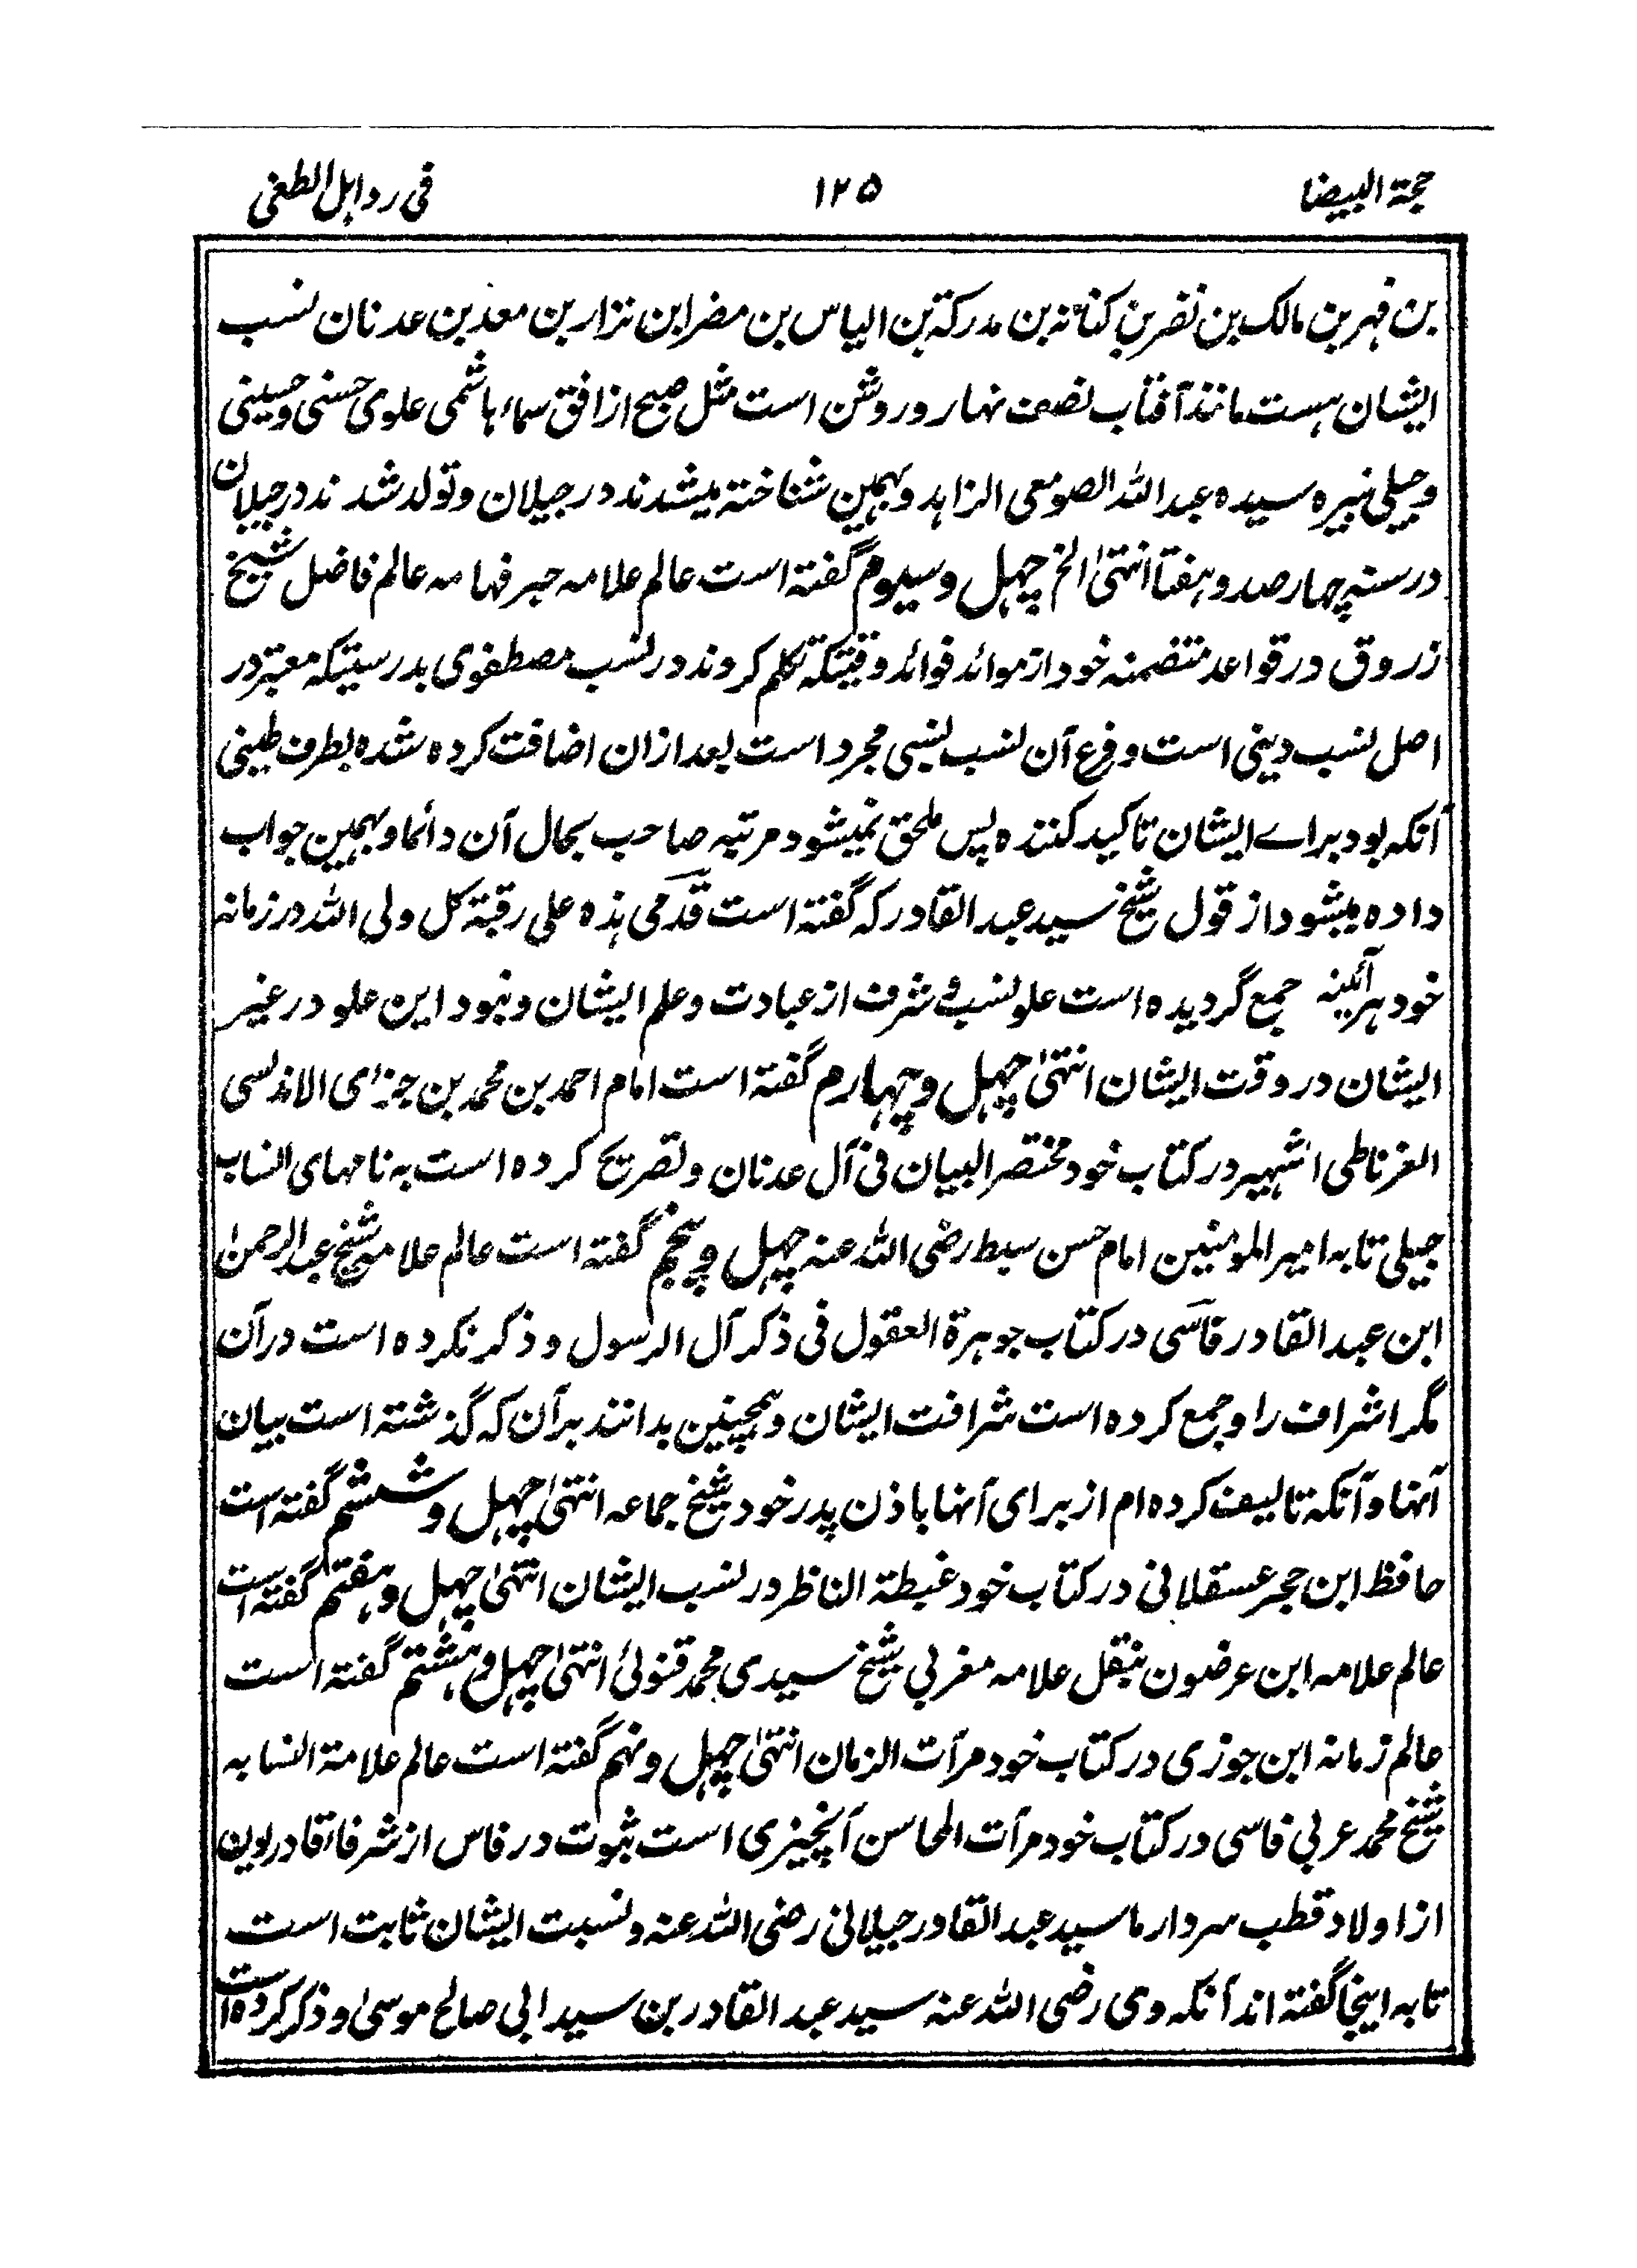 حجة البیضا
۱۲۵
فی رد اہل الطغی
بن فہر بن مالک بن نضر بن کنانہ بن مدرکة بن الیاس بن مضر ابن نزار بن معد بن عدنان نسب
ایشان ہست مانند آفتاب نصف نہار و روشن است مثل صبح از افق سماء ہاشمی علوی حسنی و حسینی
و جیلی نبیرہ سیدہ عبد اللہ الصومعی الزاہد و بہمین شناختہ میشدند در جیلان و تولد شدند در جیلان
در سنہ چہار صد و ہفتاد انتہیٰ الخ چہل و سیوم گفتہ است عالم علامہ حبر فہامہ عالم فاضل شیخ
زروق در قواعد متضمنہ خود از موائد فوائد وقتیکہ تکلم کردند در نسب مصطفوی بدرستیکہ معتبر در
اصل نسب دینی است و فرع آن نسب نسبی مجرد است بعد ازان اضافت کردہ شدہ بطرف طینی
آنکہ بود براے ایشان تاکید کنندہ پس ملحق نمیشود مرتبہ صاحب بحال آن دائما و بہمین جواب
دادہ میشود از قول شیخ سید عبد القادر کہ گفتہ است قدمی ہذہ علی رقبة کل ولی اللہ در زمانہ
خود ہر آئینہ جمع گردیدہ است علو نسب و شرف از عبادت و علم ایشان و نبود این علو در غیر
ایشان در وقت ایشان انتہیٰ چہل و چہارم گفتہ است امام احمد بن محمد بن جزای الاندلسی
الغرناطی اشہیر در کتاب خود مختصر البیان فی آل عدنان و تصریح کردہ است بہ نامہای انساب
جیلی تا بہ امیر المومنین امام حسن سبط رضی اللہ عنہ چہل و پنجم گفتہ است عالم علامہ شیخ عبد الرحمن
ابن عبد القادر فاسی در کتاب جوہرة العقول فی ذکر آل الرسول و ذکر نکردہ است در آن
مگر اشراف را و جمع کردہ است شرافت ایشان و ہمچنین بدانند بر آن کہ گذشتہ است بیان
آنہا و آنکہ تالیف کردہ ام از برای آنہا باذن پدر خود شیخ جماعہ انتہیٰ چہل و ششم گفتہ است
حافظ ابن حجر عسقلانی در کتاب خود غبطة الناظر در نسب ایشان انتہیٰ چہل و ہفتم گفتہ است
عالم علامہ ابن عرضون بنقل علامہ مغربی شیخ سیدی محمد قنوئی انتہیٰ چہل و ہشتم گفتہ است
عالم زمانہ ابن جوزی در کتاب خود مرآت الزمان انتہیٰ چہل و نہم گفتہ است عالم علامة النسابہ
شیخ محمد عربی فاسی در کتاب خود مرآت المحاسن آنچیزی است ثبوت در فاس از شرفاء قادریون
از اولاد قطب سردار ما سید عبد القادر جیلانی رضی اللہ عنہ و نسبت ایشان ثابت است
تا بہ اینجا گفتہ اند آنکہ وی رضی اللہ عنہ سید عبد القادر بن سید ابی صالح موسیٰ و ذکر کردہ است